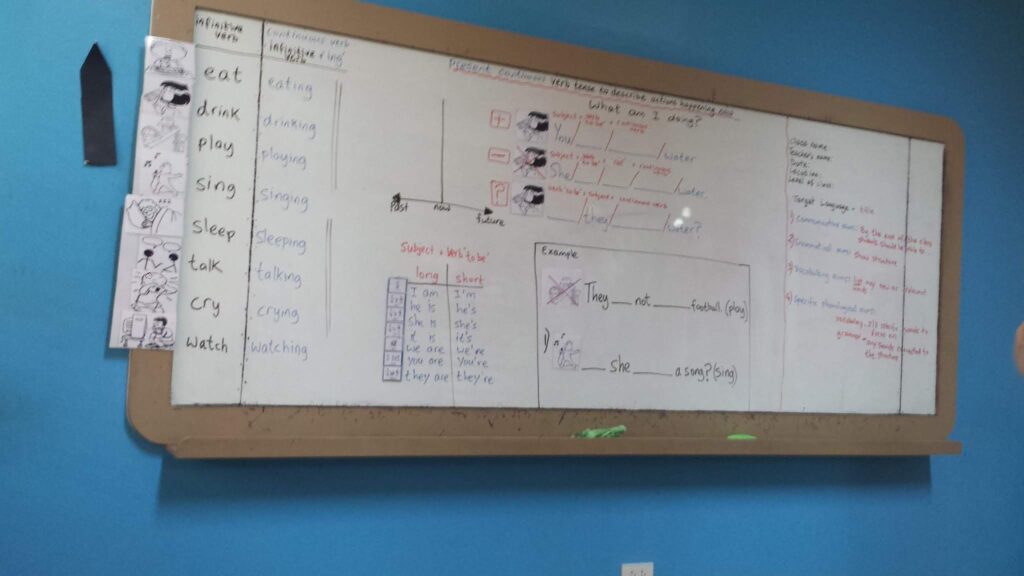 infinitive
verb
continuous verb
infinitive + 'ing'
verb
eat
eating
drink
drinking
play
playing
sing
singing
sleep
sleeping
talk
talking
cry
crying
watch
watching
Present continuous verb tense to describe actions happening
What am I doing?
+
subject + verb 'to be' + continuous verb
You / / water
-
subject + verb 'to be' + not + continuous
She / / / water
?
verb 'to be' + subject + continuous verb
/ they / water?
past
now
future
subject + verb 'to be'
long
short
I am
I'm
he is
he's
she is
she's
it is
it's
we are
we're
you are
you're
they are
they're
Example
They ___ not ______ football. (play)
1) ___ she ______ a song? (sing)
Class name:
Teacher's name:
Date:
Location:
Level of class:
Target Language = title
1) Communicative aims: By the end of the class
students should be able to...
2) Grammatical aims: show structure
3) Vocabulary aims: list any new or relevant
words
4) Specific phonological aims:
vocabulary - specific sounds to
focus on
grammar - any sounds connected to
the structure